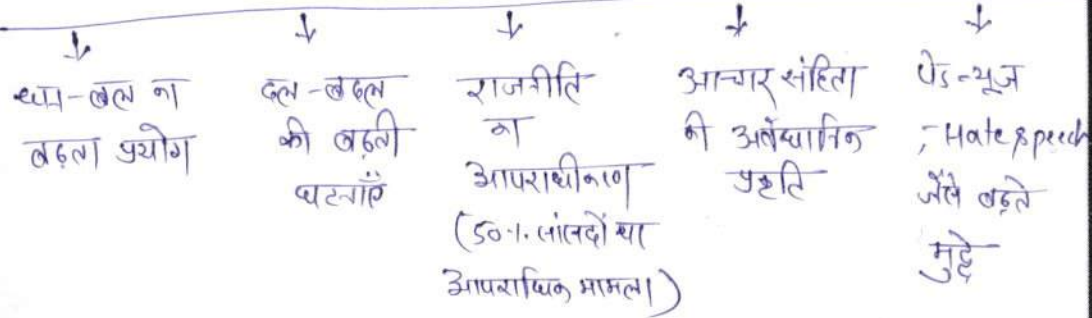 धन-बल का
बढ़ता प्रयोग
दल-बदल
की बढ़ती
घटनाएँ
राजनीति
का
आपराधीकरण
(50%. सांसदों पर
आपराधिक मामला)
आचार संहिता
की अवैधानिक
प्रकृति
पेड-न्यूज
, Hate speech
जैसे बढ़ते
मुद्दे